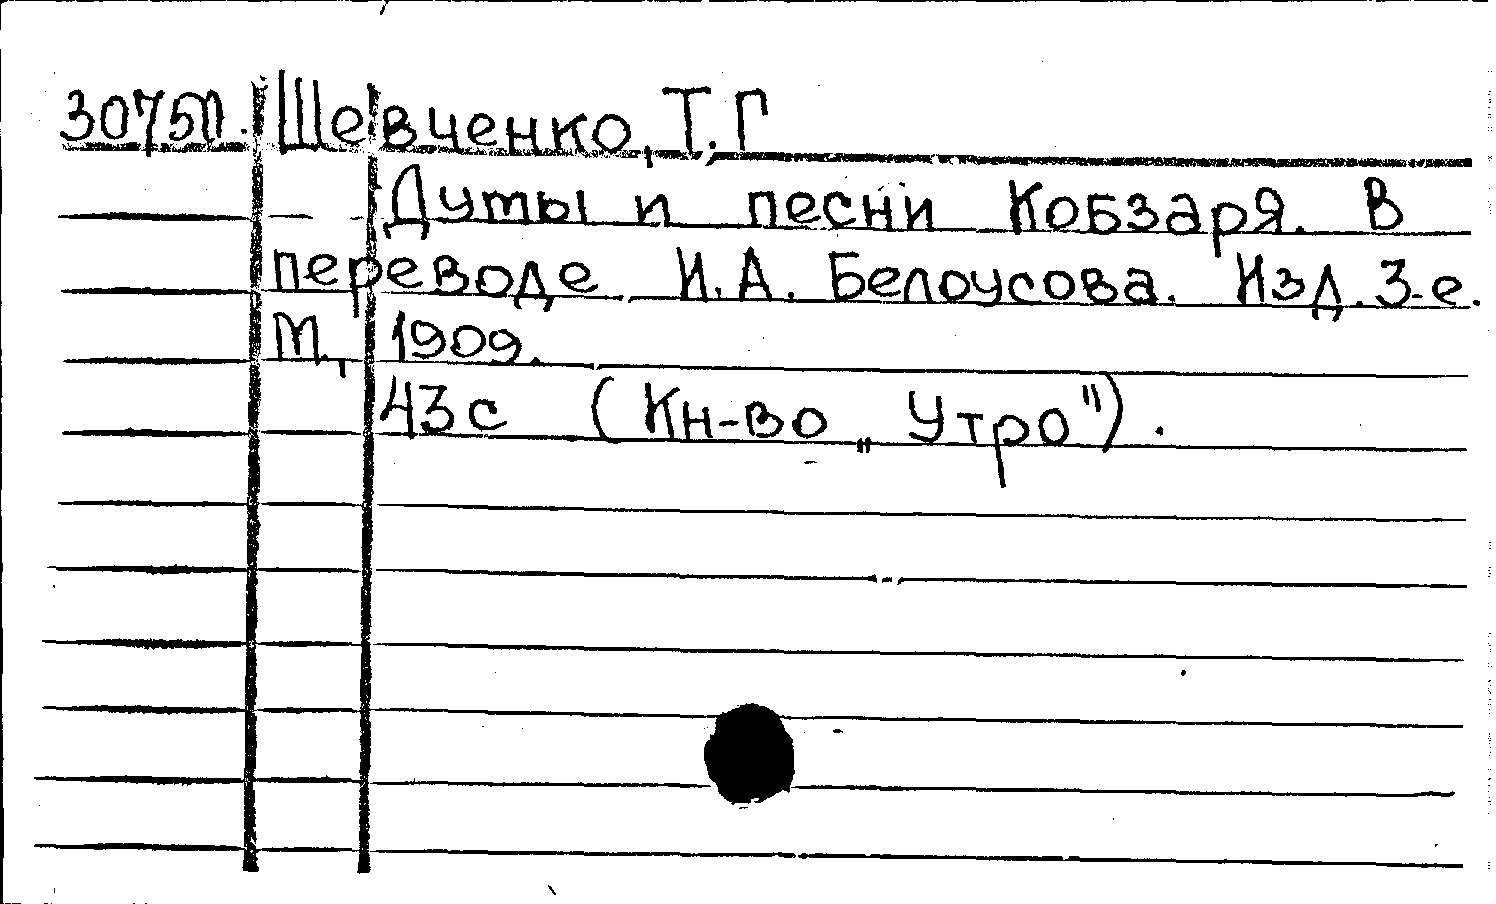 3075П. Шевченко, Т. Г
Думы и песни Кобзаря. В
переводе И. А. Белоусова. Изд. 3-е.
М., 1909.
43 с (Кн-во „Утро").